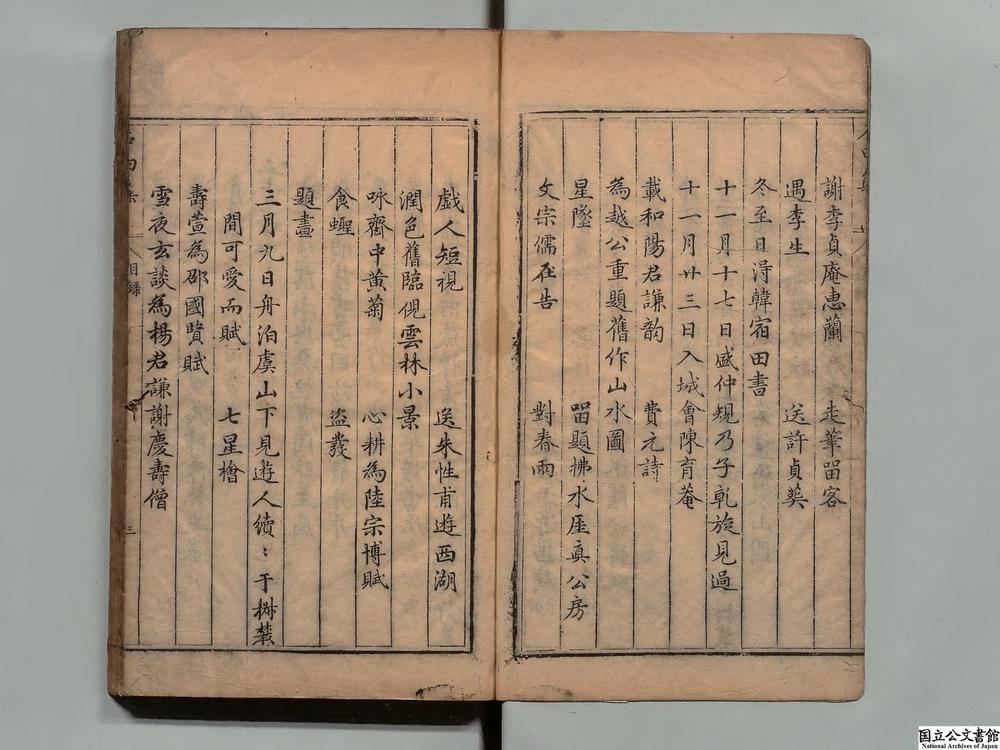 謝李貞庵惠蘭　走筆留客
遇李生　送許貞美
冬至日得韓宿田書
十一月十七日盛仲規乃子乹旋見過
十一月廿三日入城會陳育菴
載和陽君謙韵　費元詩
為越公重題舊作山水圖
星墜　畱題拂水厓真公房
文宗儒在告　對春雨
戲人短視　送朱性甫遊西湖
潤色舊臨倪雲林小景
咏齋中黃菊　心耕為陸宗博賦
食蟶　盜發
題畫
三月九日舟泊虞山下見遊人續〻于樹叢
間可愛而賦　七星檜
壽萱為邵國賢賦
雪夜玄談為楊君謙謝慶壽僧
石田集　目錄　三
国立公文書館
National Archives of Japan